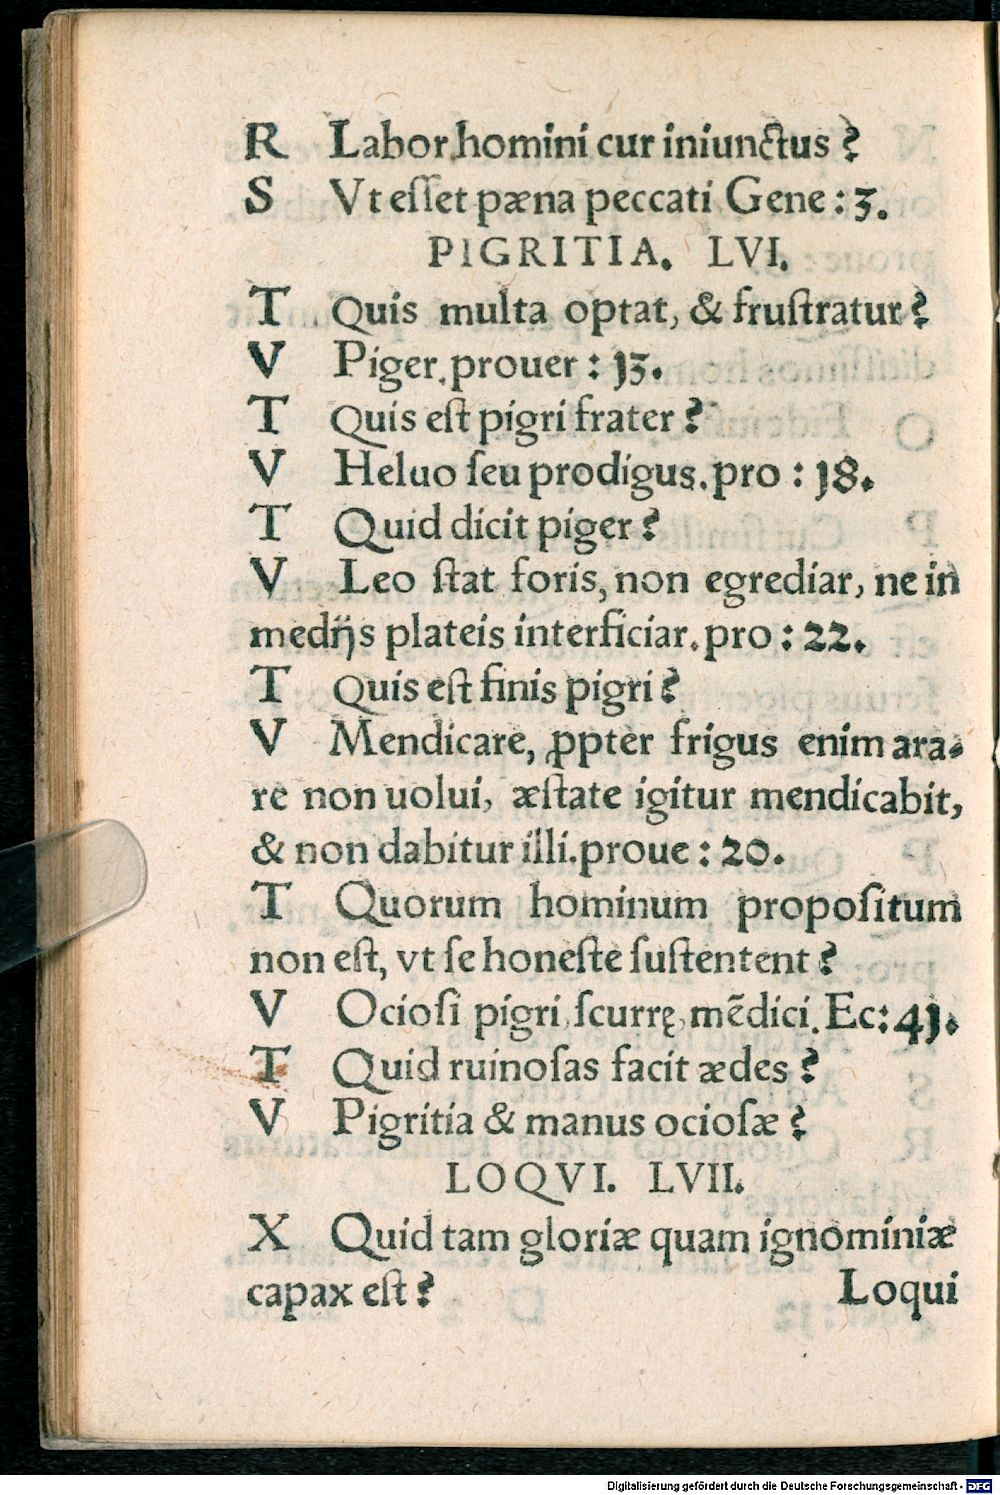 R Labor homini cur iniunctus?
S Vt eſſet pæna peccati Gene: 3.
PIGRITIA. LVI.
T Quis multa optat, & fruſtratur?
V Piger. prouer: 13.
T Quis eſt pigri frater?
V Heluo ſeu prodigus. pro: 18.
T Quid dicit piger?
V Leo ſtat foris, non egrediar, ne in
medijs plateis interficiar. pro: 22.
T Quis eſt finis pigri?
V Mendicare, ꝓpter frigus enim ara-
re non uolui, æſtate igitur mendicabit,
& non dabitur illi. proue: 20.
T Quorum hominum propoſitum
non eſt, vt ſe honeſte ſuſtentent?
V Ocioſi pigri, ſcurrę, mẽdici. Ec: 41.
T Quid ruinoſas facit ædes?
V Pigritia & manus ocioſæ?
LOQVI. LVII.
X Quid tam gloriæ quam ignominiæ
capax eſt? Loqui
Digitalisierung gefördert durch die Deutsche Forschungsgemeinschaft - DFG